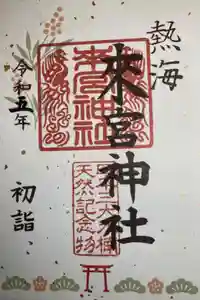 熱海
來宮神社
令和五年
初詣
來宮神社
大楠
天然記念物